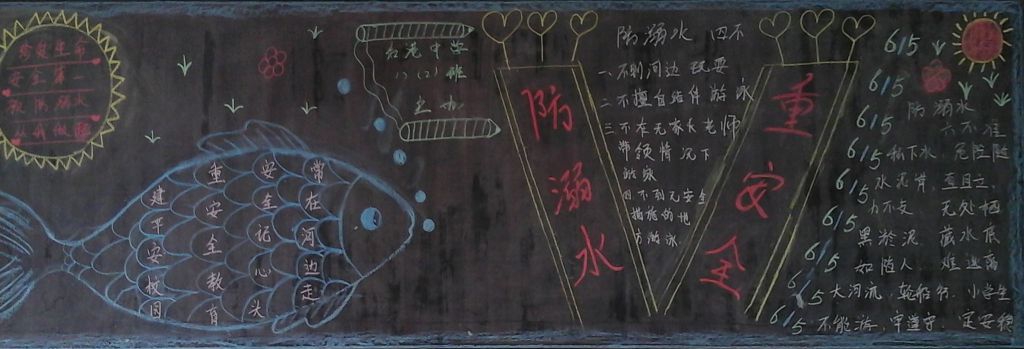 珍爱生命
安全第一
预防溺水
从我做起
常在河边走
安全记心头
重安全教育
建平安校园
中学
八(2)班
主办
防溺水
重安全
防溺水 四不
一不到河边玩耍
二不擅自结伴游泳
三不在无家长老师
带领情况下
游泳
四不到无安全
措施的地
方游泳
615
615
615
615
615
615
615
615
615
防溺水
六不准
私下水，危险随
水泥背，
力不支 无处栖
黑淤泥 藏水底
如陷人 难逃离
大河流，轮船行，小学生
不能游，牢遵守 定安稳